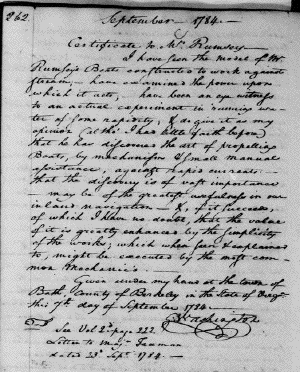 262.
September 1784.
Certificate to Mr. Rumsey
I have seen the model of Mr.
Rumsey's Boats constructed to work against
stream; have examined the power upon
which it acts; have been an eye witness
to an actual experiment in running wa-
ter of some rapidity; & do give it as my
opinion (altho' I had little faith before)
that he has discovered the art of propelling
Boats, by mechanism & small manual
assistance, against rapid currents:
that the discovery is of vast importance
may be of the greatest usefulness in our
inland navigation &, if it succeeds,
of which I have no doubt, that the value
of it is greatly enhanced by the simplicity
of the works; which when seen & explained
to, might be executed by the most com-
mon Mechanics.
Given under my hand at the town of
Bath, County of Berkeley in the State of Virga
this 7th day of September 1784.
Washington
See Vol 2d page 222
Letter to Majr. Freeman
dated 23d Septr. 1784.